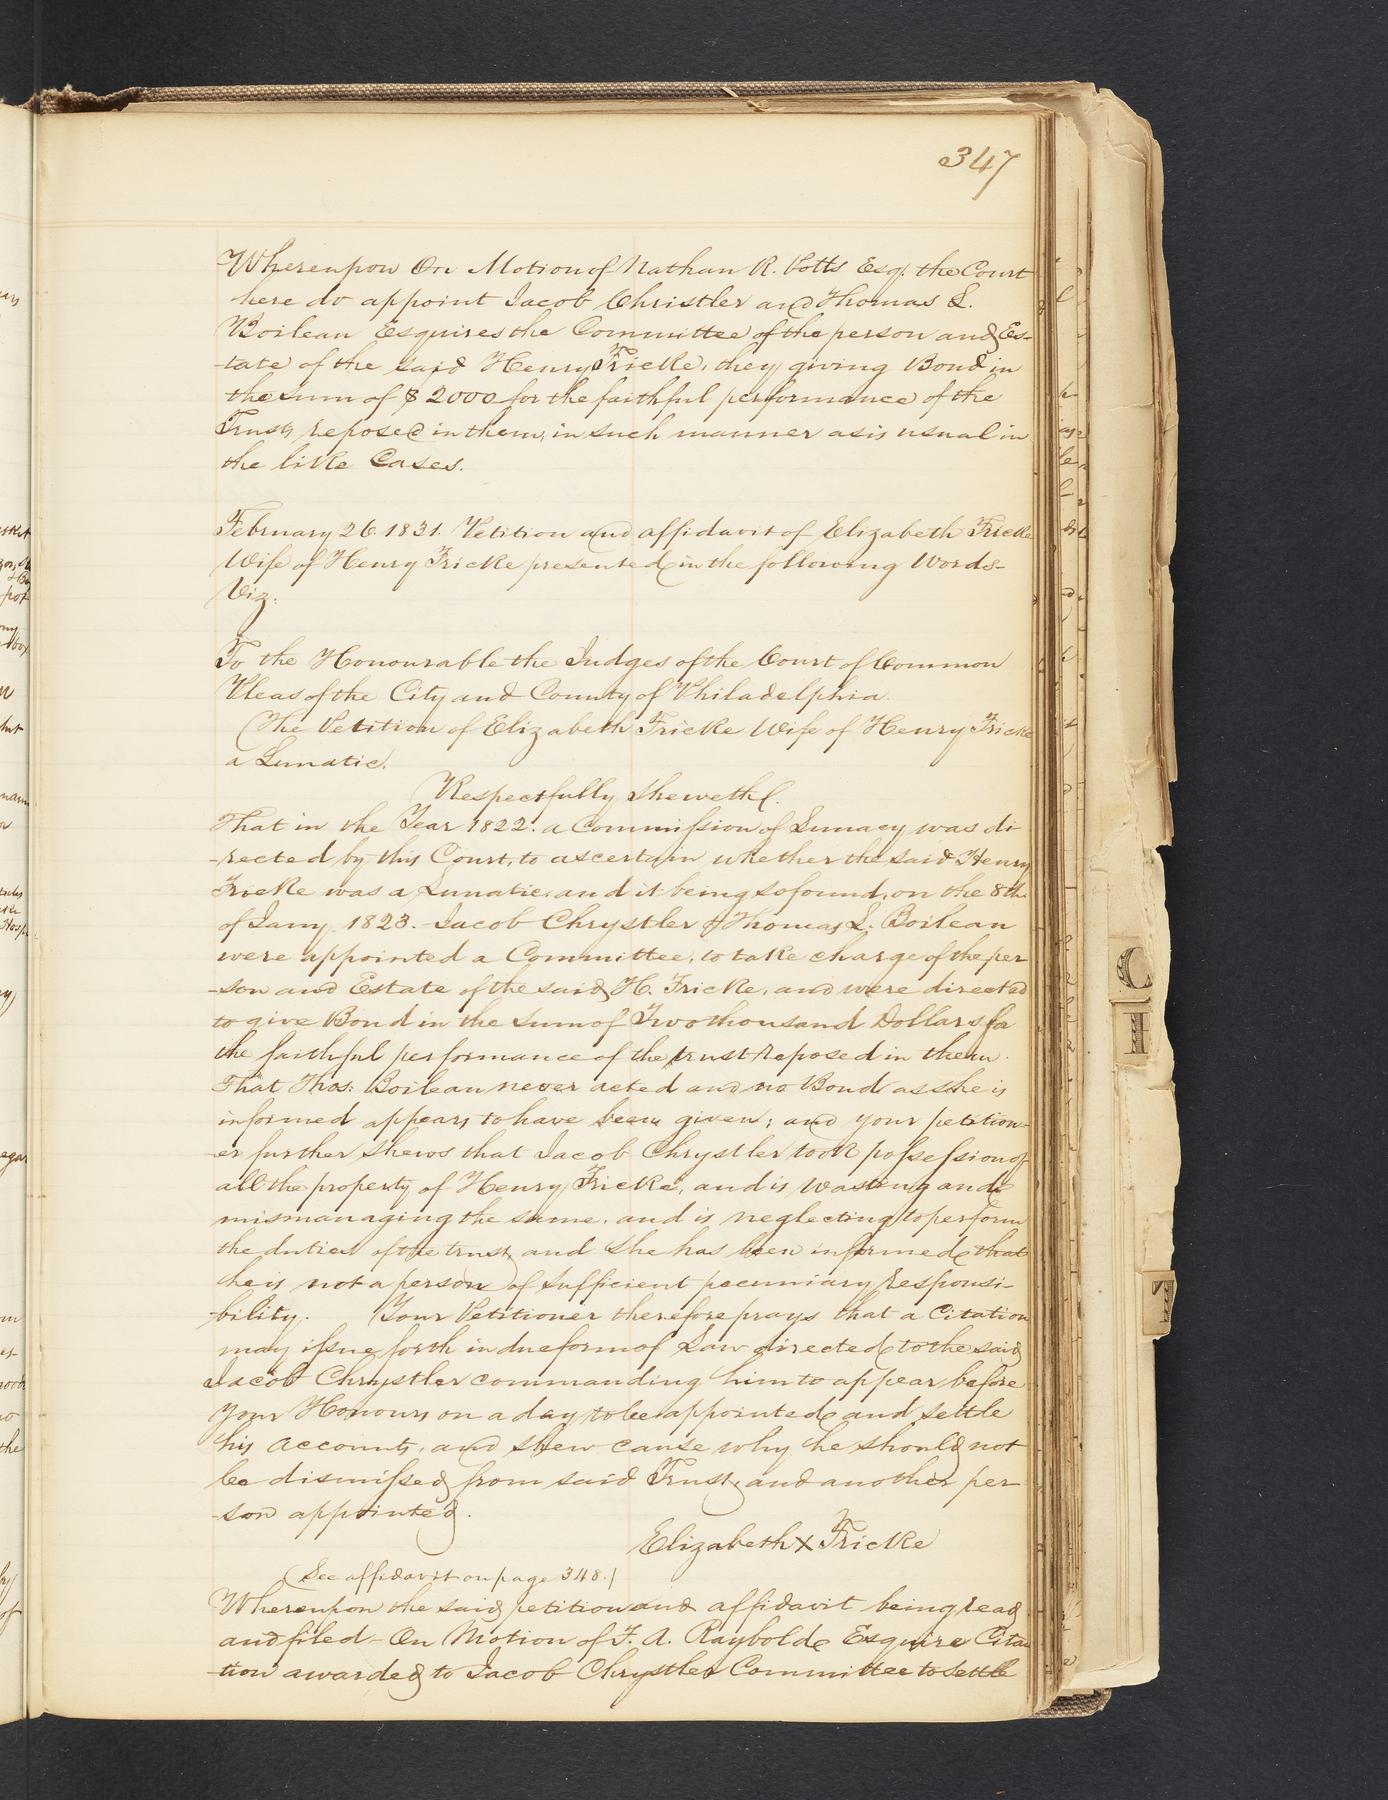 347
Whereupon On Motion of Nathan R. Potts Esq. the Court
here do appoint Jacob Christler and Thomas L.
Boilean Esquires the Committee of the person and Es-
-tate of the said Henry Fricke, they giving Bond in
the sum of $ 2000 for the faithful performance of the
Trust, reposed in them, in such manner as is usual in
the like Cases.
February 26. 1831. Petition and affidavit of Elizabeth Fricke
Wife of Henry Fricke presented in the following Words-
Viz.
To the Honourable the Judges of the Court of Common
Pleas of the City and County of Philadelphia.
The Petition of Elizabeth Fricke Wife of Henry Fricke
a Lunatic.
Respectfully Sheweth.
That in the Year 1822. a Commission of Lunacy was di-
-rected by this Court, to ascertain whether the said Henry
Fricke was a Lunatic, and it being so found, on the 8th
of Jany. 1823. Jacob Chrystler & Thomas L. Boilean
were appointed a Committee, to take charge of the per
-son and Estate of the said H. Fricke, and were directed
to give Bond in the sum of Two thousand Dollars fo
the faithful performance of the trust reposed in them.
That Thos: Boilean never acted and no Bond as she is
informed appears to have been given; and your petition-
-er further shews that Jacob Chrystler took possession of
all the property of Henry Fricke, and is wasting and
mismanaging the same, and is neglecting to perform
the duties of the trust, and she has been informed that
he is not a person of sufficient pecuniary responsi-
-bility. Your Petitioner therefore prays that a Citation
may issue forth in due form of Law directed to the said
Jacob Chrystler commanding him to appear before
Your Honours on a day to be appointed and settle
his accounts, and shew cause why he should not
be dismissed from said Trust, and another per
-son appointed.
Elizabeth X Fricke
(See affidavit on page 348.)
Whereupon the said petition and affidavit being read
and filed - On Motion of F. A. Raybold Esquire Cita
-tion awarded to Jacob Chrystler Committee to settle
C
I
T